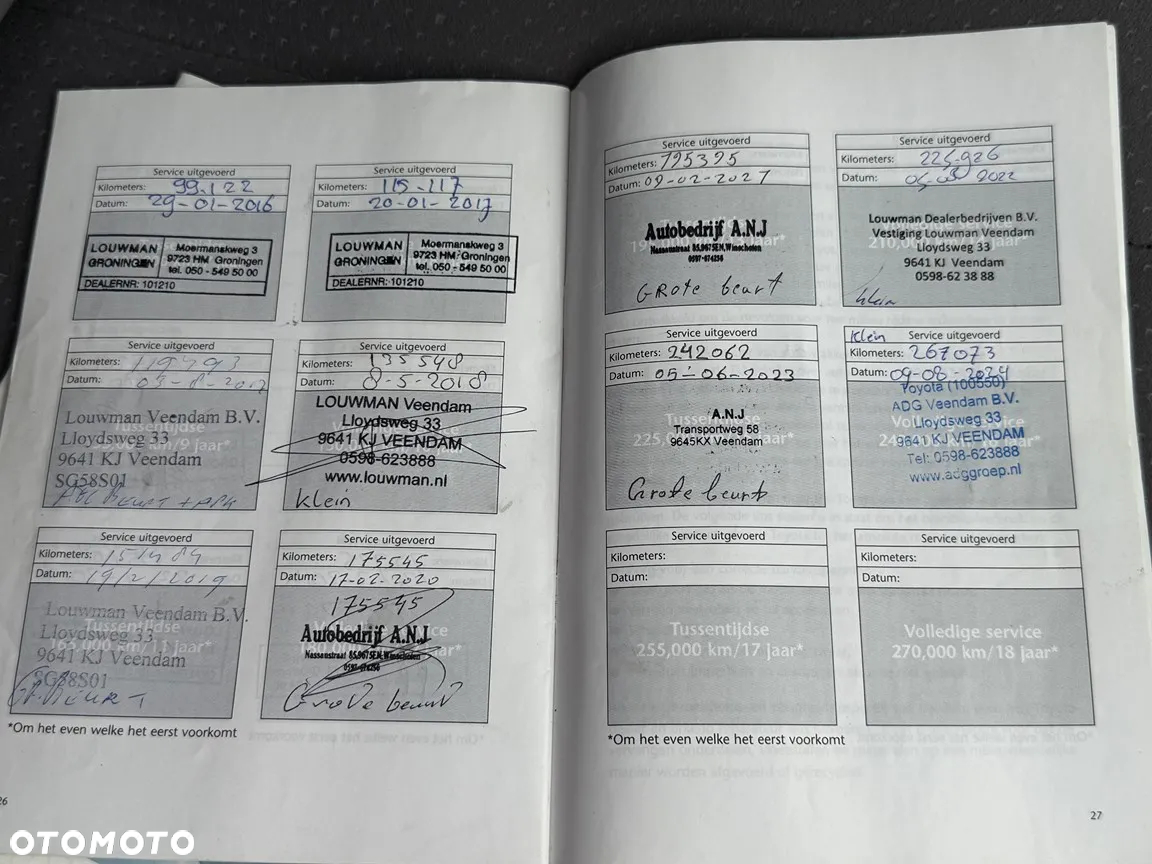 Service uitgevoerd
Kilometers: 99.122
Datum: 29-01-2016
LOUWMAN
GRONINGEN
Moermanskweg 3
9723 HM Groningen
tel. 050 - 549 50 00
DEALERNR: 101210
Service uitgevoerd
Kilometers: 115-117
Datum: 20-01-2017
LOUWMAN
GRONINGEN
Moermanskweg 3
9723 HM Groningen
tel. 050 - 549 50 00
DEALERNR: 101210
Service uitgevoerd
Kilometers:
Datum: 03-8-2017
Tussentijdse
Louwman Veendam B.V.
Lloydsweg 33
9641 KJ Veendam
SG58S01
Service uitgevoerd
Kilometers: 135548
Datum: 8-5-2018
LOUWMAN Veendam
Lloydsweg 33
9641 KJ VEENDAM
0598-623888
www.louwman.nl
Klein
Service uitgevoerd
Kilometers: 151484
Datum: 19/2/2019
Tussentijdse
165,000 km/11 jaar*
Louwman Veendam B.V.
Lloydsweg 33
9641 KJ Veendam
SG58S01
Service uitgevoerd
Kilometers: 175545
Datum: 17-02-2020
175545
Autobedrijf A.N.J
Nassaustraat 85,9675EN,Winschoten
0597-674256
Grote beurt
*Om het even welke het eerst voorkomt
26
Service uitgevoerd
Kilometers: 195395
Datum: 09-02-2021
Autobedrijf A.N.J
Nassaustraat 85,9675EN,Winschoten
0597-674256
GRote beurt
Service uitgevoerd
Kilometers: 225-926
Datum: 2022
Louwman Dealerbedrijven B.V.
Vestiging Louwman Veendam
Lloydsweg 33
9641 KJ Veendam
0598-62 38 88
klein
Service uitgevoerd
Kilometers: 242062
Datum: 05-06-2023
Tussentijdse
A.N.J
Transportweg 58
9645KX Veendam
Grote beurt
Klein Service uitgevoerd
Kilometers: 267073
Datum: 09-08-2024
Toyota (100550)
ADG Veendam B.V.
Lloydsweg 33
9641 KJ VEENDAM
Tel: 0598-623888
www.adggroep.nl
Service uitgevoerd
Kilometers:
Datum:
Tussentijdse
255,000 km/17 jaar*
Service uitgevoerd
Kilometers:
Datum:
Volledige service
270,000 km/18 jaar*
*Om het even welke het eerst voorkomt
27
OTOMOTO